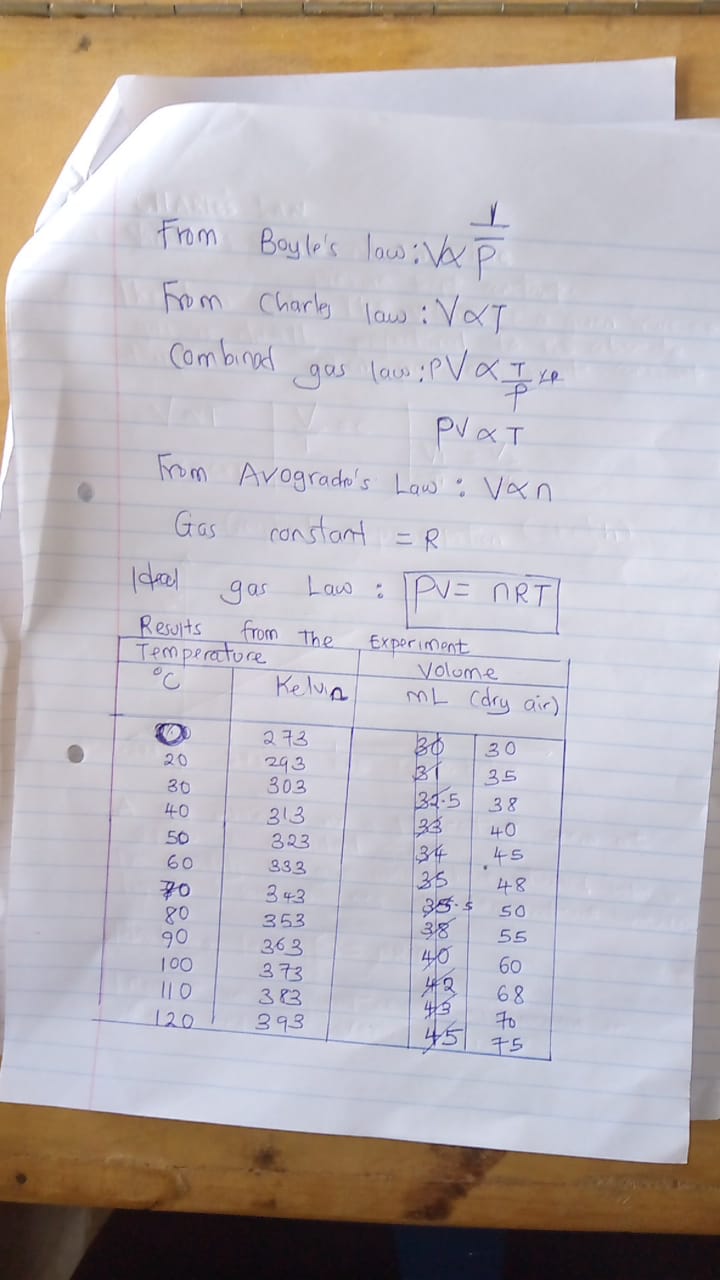 From Boyle's law: V∝ 1/P
From Charles law : V∝T
Combined gas law: PV ∝ T/P ×P
PV∝T
From Avogrado's Law : V∝n
Gas constant = R
Ideal gas Law : PV= nRT
Results from the Experiment
Temperature Volume
°C Kelvin mL (dry air)
0 273 30 30
20 293 31 35
30 303 32.5 38
40 313 33 40
50 323 34 45
60 333 35 48
70 343 35.5 50
80 353 38 55
90 363 40 60
100 373 42 68
110 383 43 70
120 393 45 75